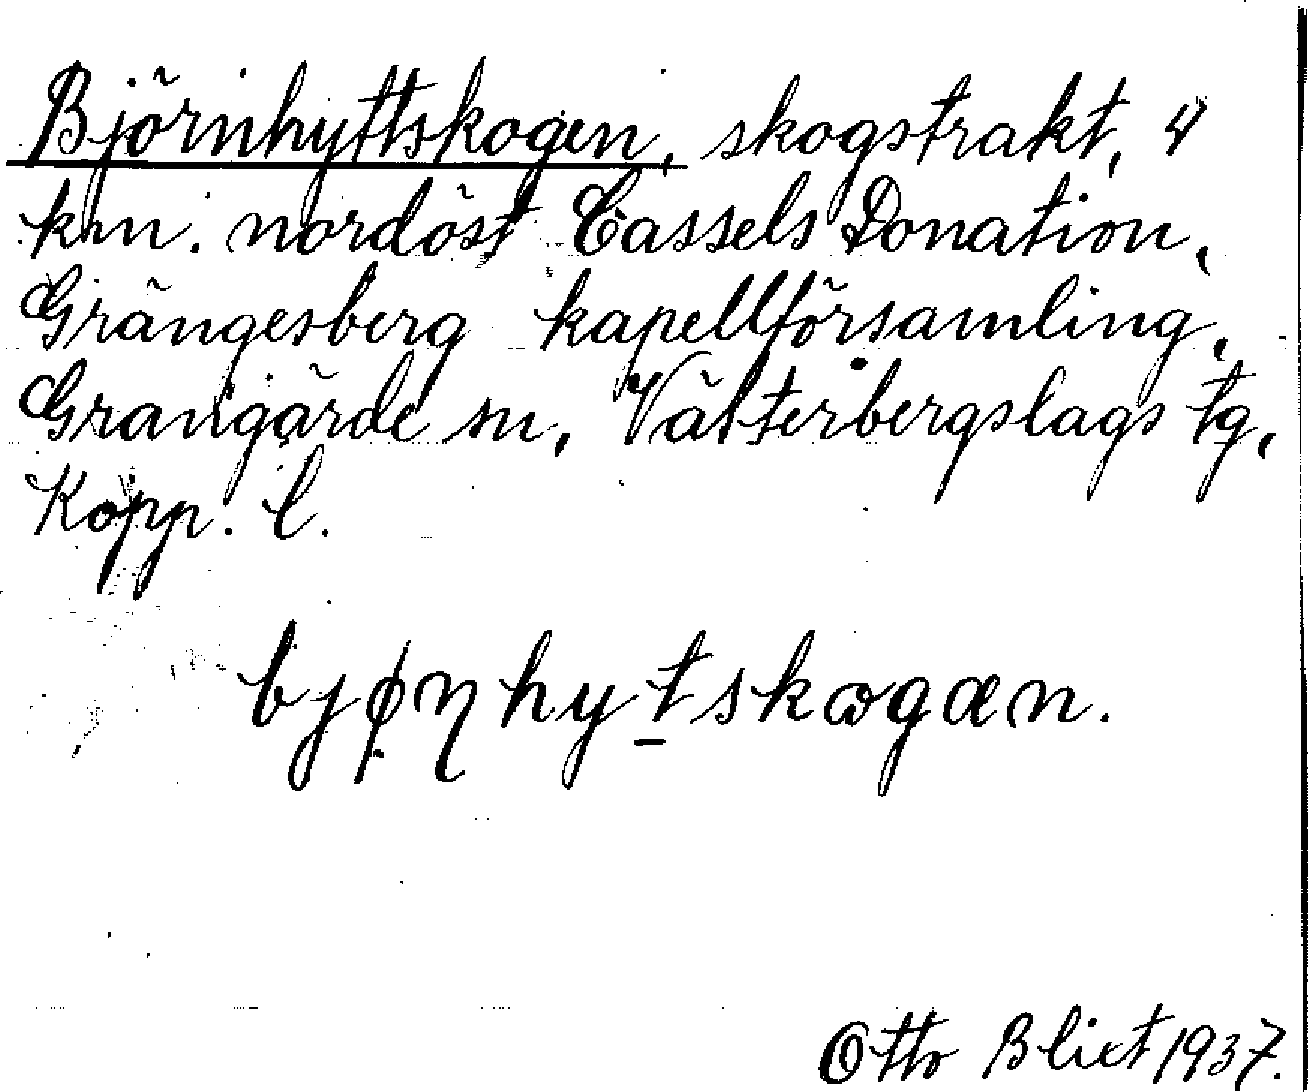 Björnhyttskogen, skogstrakt, 4
km. nordöst Cassels Donation,
Grängesberg kapellförsamling,
Grangärde sn, Västerbergslags tg,
Kopp. l.
bjφɳhytskωgæn.
Otto Blixt 1937.